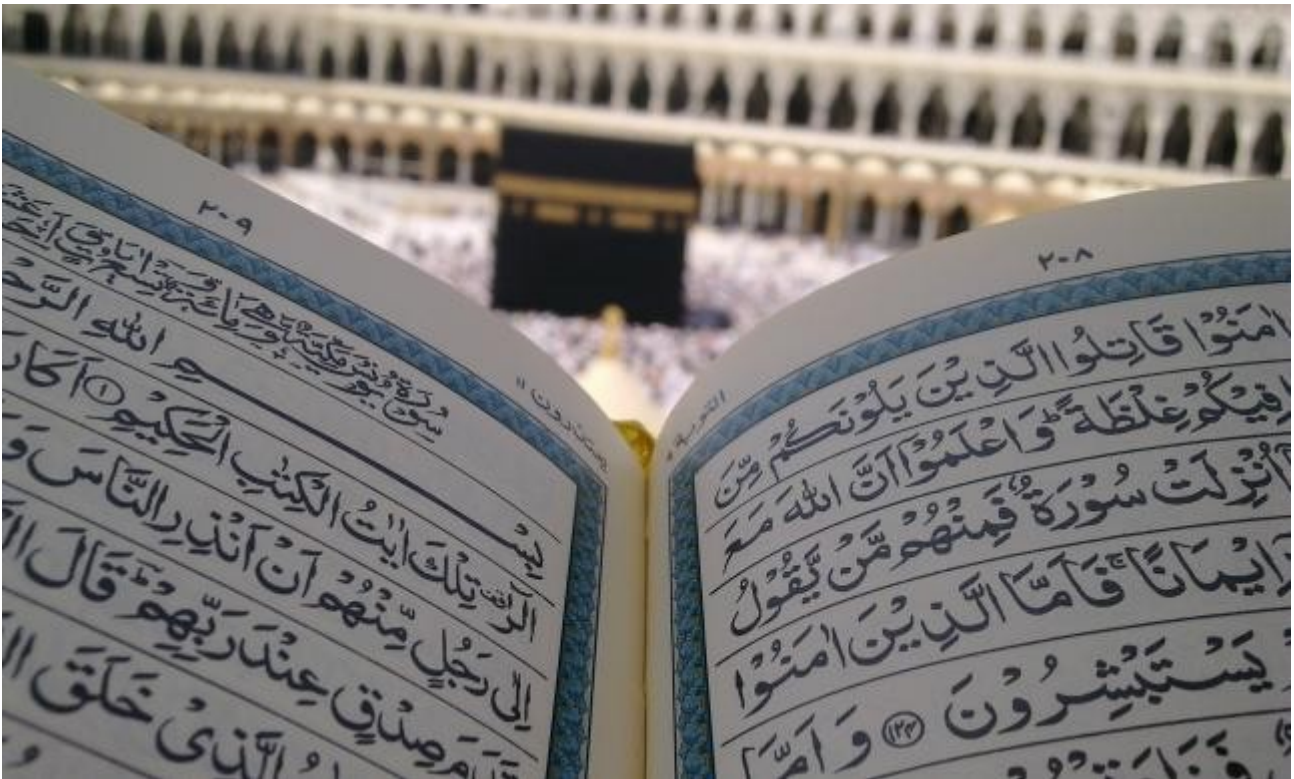 ٢٠٨
التوبة ٩
اٰمَنُوۡا قَاتِلُوا الَّذِيۡنَ يَلُوۡنَكُمۡ مِّنَ
فِيۡكُمۡ غِلۡظَةً ؕ وَاعۡلَمُوۡۤا اَنَّ اللّٰهَ مَعَ
اُنۡزِلَتۡ سُوۡرَةٌ فَمِنۡهُمۡ مَّنۡ يَّقُوۡلُ
اِيۡمَانًا ۚ فَاَمَّا الَّذِيۡنَ اٰمَنُوۡا
يَسۡتَبۡشِرُوۡنَ ﴿۱۲۴﴾ وَاَمَّا
٢٠٩
يعتذرون ١١
سُوۡرَةُ يُوۡنُسَ مَكِّيَّةٌ وَّهِيَ مِائَةٌ وَّتِسۡعُ اٰيَاتٍ
بِسۡمِ اللّٰهِ الرَّحۡ
الٓرٰ تِلۡكَ اٰيٰتُ الۡكِتٰبِ الۡحَكِيۡمِ ﴿۱﴾ اَكَانَ
اِلٰى رَجُلٍ مِّنۡهُمۡ اَنۡ اَنۡذِرِ النَّاسَ وَ
قَدَمَ صِدۡقٍ عِنۡدَ رَبِّهِمۡ ؕ قَالَ
الَّذِىۡ خَلَقَ